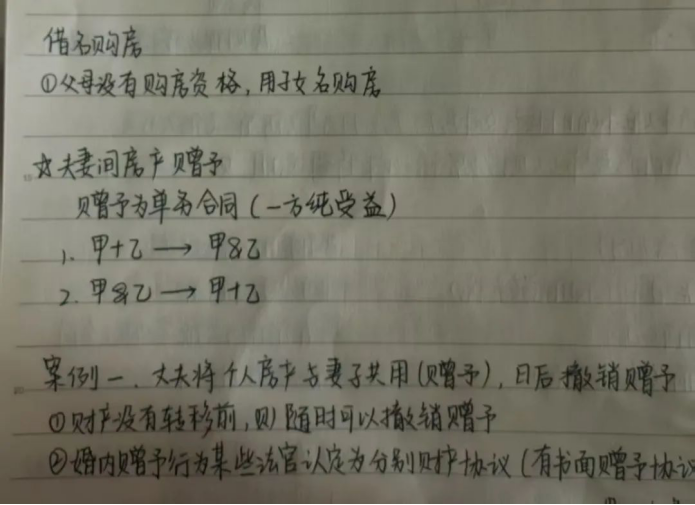 借名购房
①父母没有购房资格,用子女名购房
☆夫妻间房产赠予
赠予为单务合同(一方纯受益)
1. 甲+乙 → 甲&乙
2. 甲&乙 → 甲+乙
案例一、丈夫将个人房产与妻子共用(赠予),日后撤销赠予
①财产没有转移前,则随时可以撤销赠予
②婚内赠予行为某些法官认定为分别财产协议(有书面赠予协议